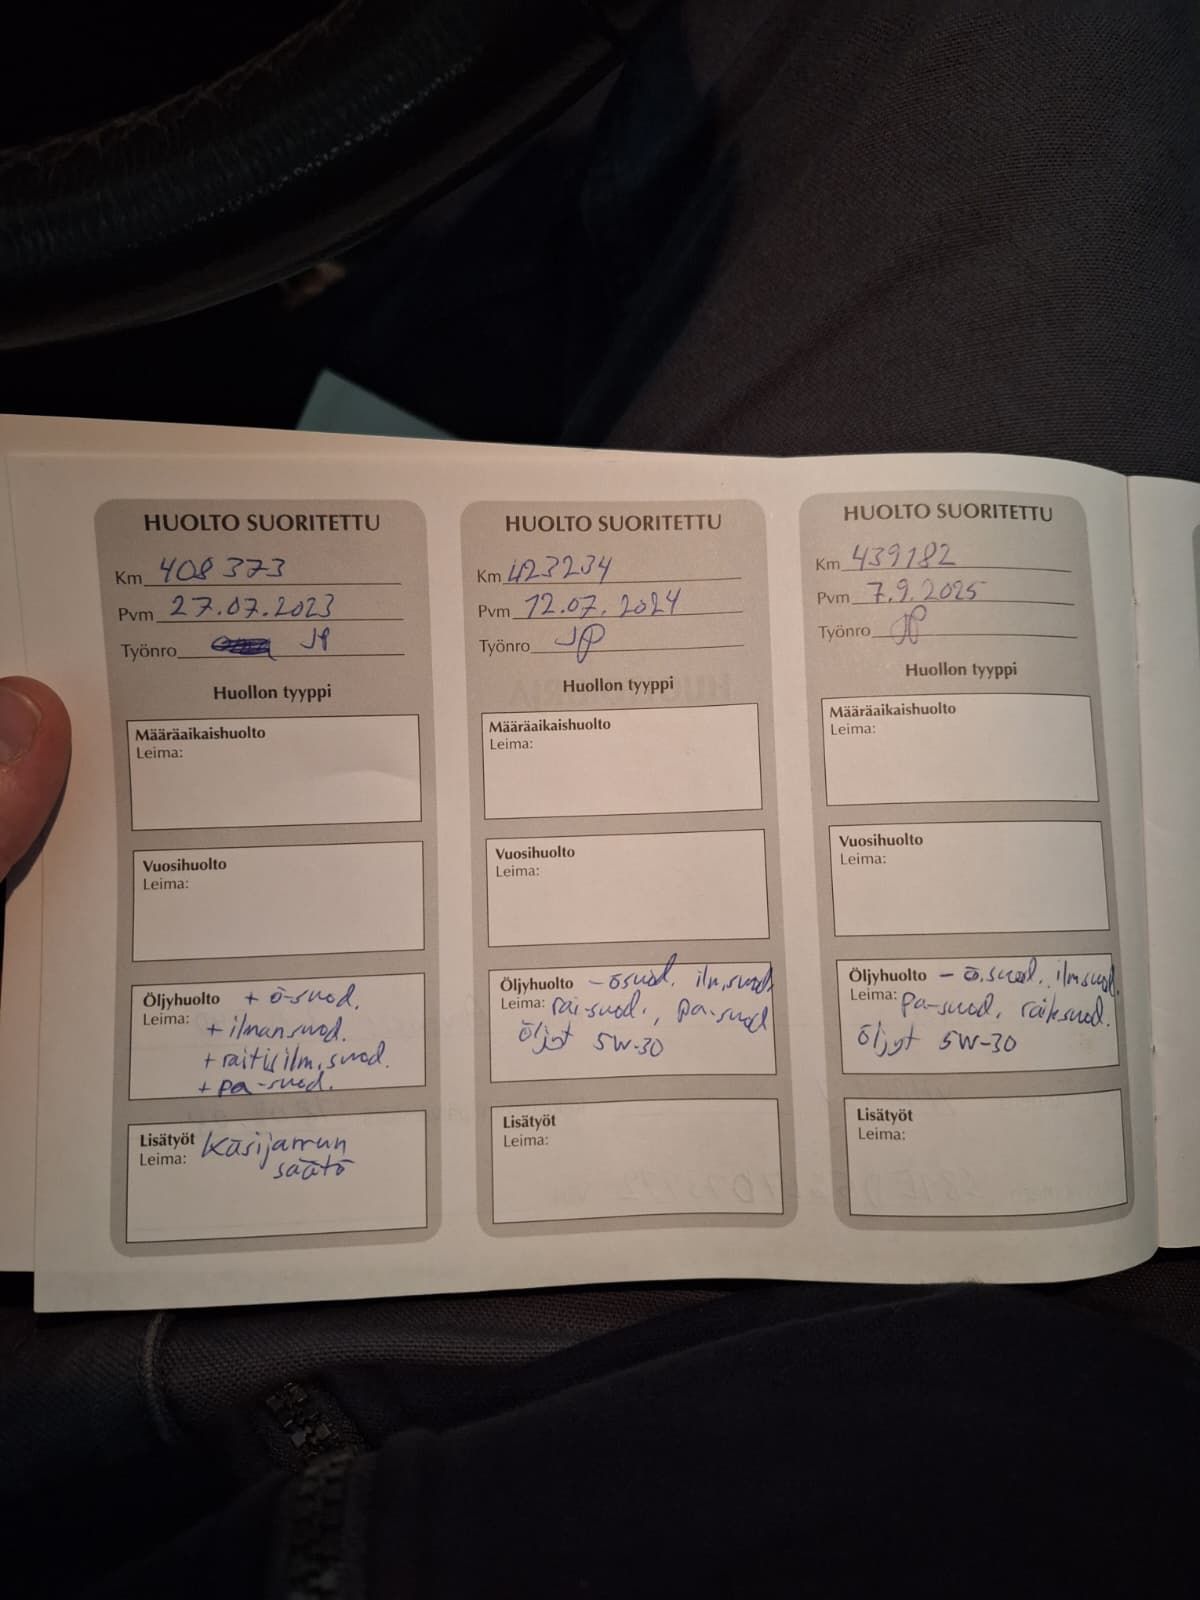 HUOLTO SUORITETTU
Km 408 373
Pvm 27.07.2023
Työnro JP
Huollon tyyppi
Määräaikaishuolto
Leima:
Vuosihuolto
Leima:
Öljyhuolto + ö-suod.
Leima:
+ ilmansuod.
+ raitis ilm.suod.
+ pa-suod.
Lisätyöt Käsijarrun
Leima: säätö
HUOLTO SUORITETTU
Km 423234
Pvm 12.07.2024
Työnro JP
Huollon tyyppi
Määräaikaishuolto
Leima:
Vuosihuolto
Leima:
Öljyhuolto - ösuod. ilm.suod.
Leima: rai-suod., pa-suod
Öljyt 5W-30
Lisätyöt
Leima:
HUOLTO SUORITETTU
Km 439182
Pvm 7.9.2025
Työnro JP
Huollon tyyppi
Määräaikaishuolto
Leima:
Vuosihuolto
Leima:
Öljyhuolto - ö.suod. ilmsuod.
Leima: pa-suod, raitsuod.
Öljyt 5W-30
Lisätyöt
Leima: